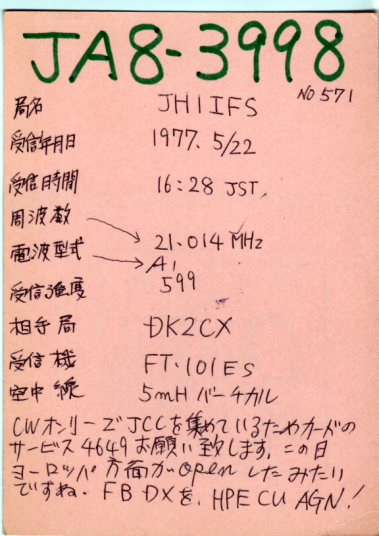 JA8-3998
NO 571
局名 JH1IFS
受信年月日 1977. 5/22
受信時間 16:28 JST.
周波数 21.014 MHz
電波型式 A1
受信強度 599
相手局 DK2CX
受信機 FT-101ES
空中線 5mH バーチカル
CWオンリーでJCCを集めているためカードの
サービス4649お願い致します。この日
ヨーロッパ方面がopenしたみたい
ですね. FB DXを. HPE CU AGN!